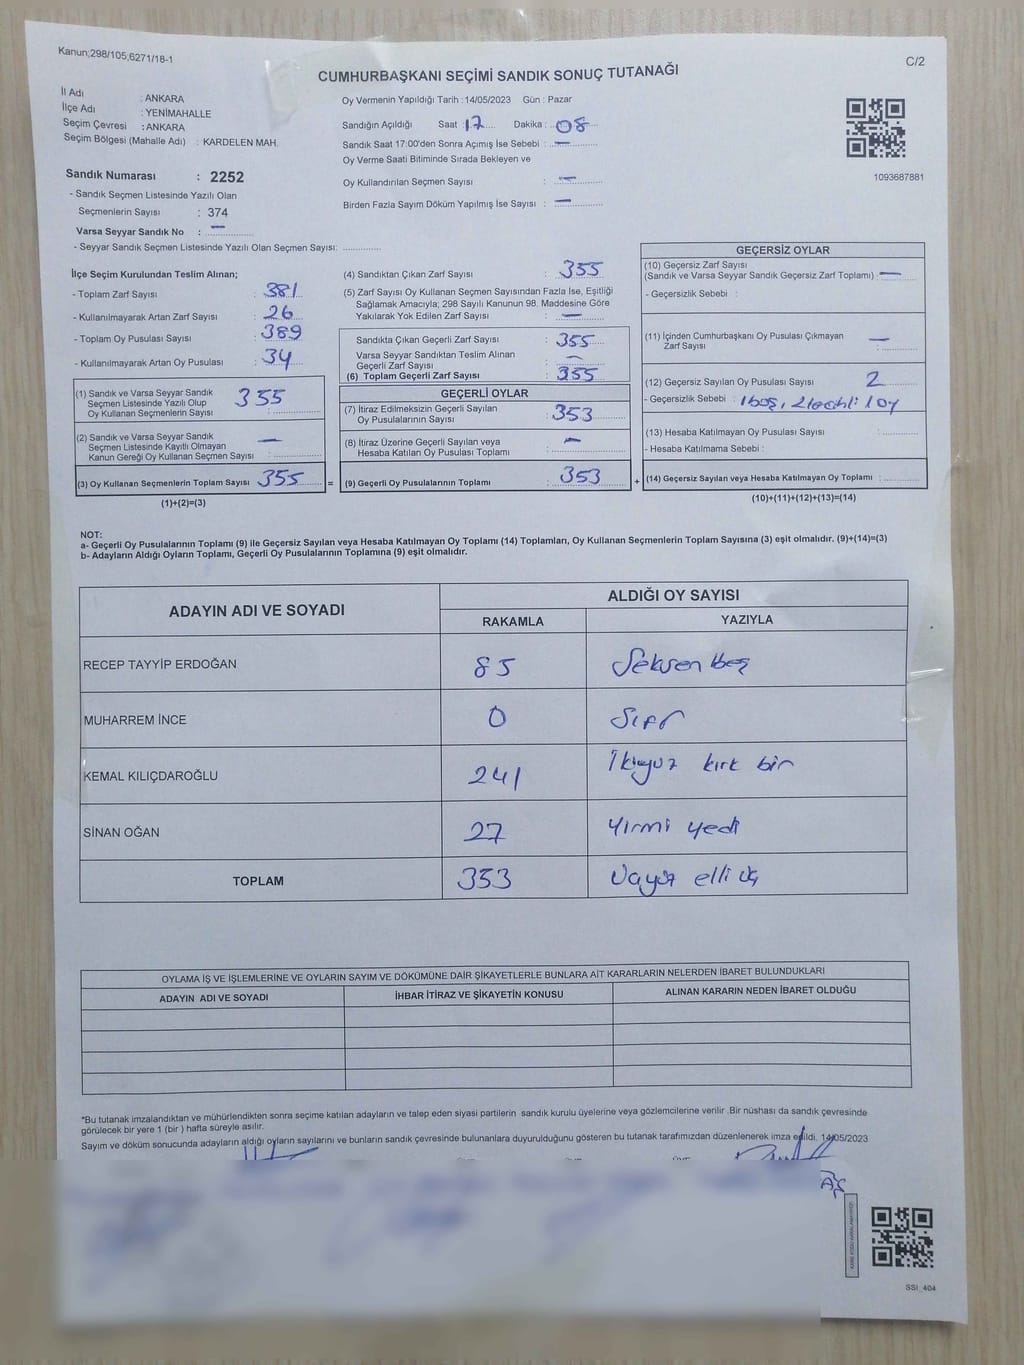 Kanun;298/105,6271/18-1
C/2
CUMHURBAŞKANI SEÇİMİ SANDIK SONUÇ TUTANAĞI
İl Adı : ANKARA
İlçe Adı : YENİMAHALLE
Seçim Çevresi : ANKARA
Seçim Bölgesi (Mahalle Adı) : KARDELEN MAH.
Sandık Numarası : 2252
- Sandık Seçmen Listesinde Yazılı Olan
Seçmenlerin Sayısı : 374
Varsa Seyyar Sandık No : —
- Seyyar Sandık Seçmen Listesinde Yazılı Olan Seçmen Sayısı: ..............
Oy Vermenin Yapıldığı Tarih : 14/05/2023 Gün : Pazar
Sandığın Açıldığı Saat : 17 Dakika : 08
Sandık Saat 17:00'den Sonra Açımış İse Sebebi : —
Oy Verme Saati Bitiminde Sırada Bekleyen ve
Oy Kullandırılan Seçmen Sayısı : —
Birden Fazla Sayım Döküm Yapılmış İse Sayısı : —
1093687881
İlçe Seçim Kurulundan Teslim Alınan;
- Toplam Zarf Sayısı : 381
- Kullanılmayarak Artan Zarf Sayısı : 26
- Toplam Oy Pusulası Sayısı : 389
- Kullanılmayarak Artan Oy Pusulası : 34
(1) Sandık ve Varsa Seyyar Sandık
Seçmen Listesinde Yazılı Olup
Oy Kullanan Seçmenlerin Sayısı : 355
(2) Sandık ve Varsa Seyyar Sandık
Seçmen Listesinde Kayıtlı Olmayan
Kanun Gereği Oy Kullanan Seçmen Sayısı : —
(3) Oy Kullanan Seçmenlerin Toplam Sayısı 355 =
(1)+(2)=(3)
(4) Sandıktan Çıkan Zarf Sayısı : 355
(5) Zarf Sayısı Oy Kullanan Seçmen Sayısından Fazla İse, Eşitliği
Sağlamak Amacıyla; 298 Sayılı Kanunun 98. Maddesine Göre
Yakılarak Yok Edilen Zarf Sayısı : —
Sandıkta Çıkan Geçerli Zarf Sayısı : 355
Varsa Seyyar Sandıktan Teslim Alınan
Geçerli Zarf Sayısı : —
(6) Toplam Geçerli Zarf Sayısı : 355
GEÇERLİ OYLAR
(7) İtiraz Edilmeksizin Geçerli Sayılan
Oy Pusulalarının Sayısı : 353
(8) İtiraz Üzerine Geçerli Sayılan veya
Hesaba Katılan Oy Pusulası Toplamı : —
(9) Geçerli Oy Pusulalarının Toplamı : 353 +
GEÇERSİZ OYLAR
(10) Geçersiz Zarf Sayısı
(Sandık ve Varsa Seyyar Sandık Geçersiz Zarf Toplamı) : —
- Geçersizlik Sebebi :
(11) İçinden Cumhurbaşkanı Oy Pusulası Çıkmayan
Zarf Sayısı : —
(12) Geçersiz Sayılan Oy Pusulası Sayısı : 2
- Geçersizlik Sebebi : 1 boş, oy
(13) Hesaba Katılmayan Oy Pusulası Sayısı :
- Hesaba Katılmama Sebebi :
(14) Geçersiz Sayılan veya Hesaba Katılmayan Oy Toplamı :
(10)+(11)+(12)+(13)=(14)
NOT:
a- Geçerli Oy Pusulalarının Toplamı (9) ile Geçersiz Sayılan veya Hesaba Katılmayan Oy Toplamı (14) Toplamları, Oy Kullanan Seçmenlerin Toplam Sayısına (3) eşit olmalıdır. (9)+(14)=(3)
b- Adayların Aldığı Oyların Toplamı, Geçerli Oy Pusulalarının Toplamına (9) eşit olmalıdır.
ADAYIN ADI VE SOYADI ALDIĞI OY SAYISI
RAKAMLA YAZIYLA
RECEP TAYYİP ERDOĞAN 85 Seksen beş
MUHARREM İNCE 0 Sıfır
KEMAL KILIÇDAROĞLU 241 İkiyüz kırk bir
SİNAN OĞAN 27 Yirmi yedi
TOPLAM 353 Üçyüz elli üç
OYLAMA İŞ VE İŞLEMLERİNE VE OYLARIN SAYIM VE DÖKÜMÜNE DAİR ŞİKAYETLERLE BUNLARA AİT KARARLARIN NELERDEN İBARET BULUNDUKLARI
ADAYIN ADI VE SOYADI İHBAR İTİRAZ VE ŞİKAYETİN KONUSU ALINAN KARARIN NEDEN İBARET OLDUĞU
*Bu tutanak imzalandıktan ve mühürlendikten sonra seçime katılan adayların ve talep eden siyasi partilerin sandık kurulu üyelerine veya gözlemcilerine verilir .Bir nüshası da sandık çevresinde
görülecek bir yere 1 (bir ) hafta süreyle asılır.
Sayım ve döküm sonucunda adayların aldığı oyların sayılarını ve bunların sandık çevresinde bulunanlara duyurulduğunu gösteren bu tutanak tarafımızdan düzenlenerek imza edildi. 14/05/2023
SSI_404